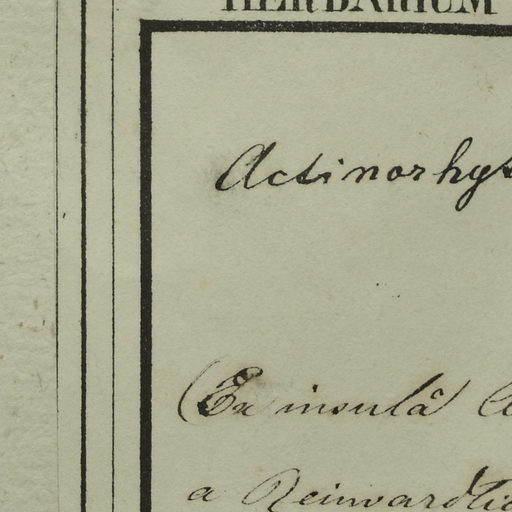 HERBARIUM
Actinorhyt
(Ex insulâ
a Reinwardtio